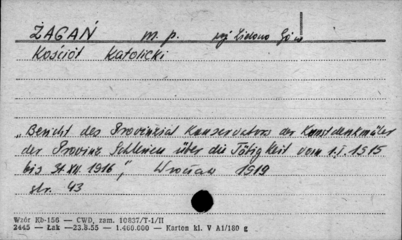 ŻAGAŃ m. p. woj Zielona Góra
Kościół Katolicki
„Bericht des Provinzial Konservators der Kunstdenkmäler
der Provinz Schlesien über die Tätigkeit vom 1.I.1915
bis 31 XII. 1916”, Wrocław 1919
str. 43
Wzór Kb-156 — CWD, zam. 10837/T-1/II
2445 — Łak —23.8.55 — 1.466.000 — Karton kl. V A1/180 g